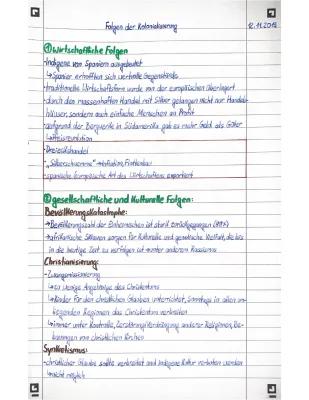 Folgen der Kolonialisierung 12.11.2018
① Wirtschaftliche Folgen
- Indigene von Spaniern ausgebeutet
↳ Spanier erhofften sich wertvolle Gegenstände
- traditionelle Wirtschaftsform wurde von der europäischen überlagert
- durch den massenhaften Handel mit Silber gelangen nicht nur Handels-
häuser, sondern auch einfache Menschen an Profit
- aufgrund der Bergwerke in Südamerika gab es mehr Geld als Güter
↳ Preisrevolution
- Dreieckshandel
- "Silberschwemme" → Inflation,
- spanische europäische Art des Wirtschaftens exportiert
② gesellschaftliche und kulturelle Folgen:
Bevölkerungskatastrophe:
↳ Bevölkerungszahl der Einheimischen ist stark zurückgegangen
- afrikanische Sklaven sorgen für kulturelle und genetische Vielfalt, die bis
in die heutige Zeit zu verfolgen ist → unter anderem Rassismus
Christianisierung:
- Zwangsmissionierung
↳ zu wenige Angehörige des Christentums
↳ Kinder für den christlichen Glauben unterrichtet, Sonntags in allen um-
liegenden Regionen das Christentum verbreiten
↳ immer unter Kontrolle, Zerstörung/Verdrängung anderer Religionen,
von christlichen Kirchen
Synkretismus:
- christlicher Glaube sollte verbreitet und indigene Kultur verboten werden
↳ nicht möglich